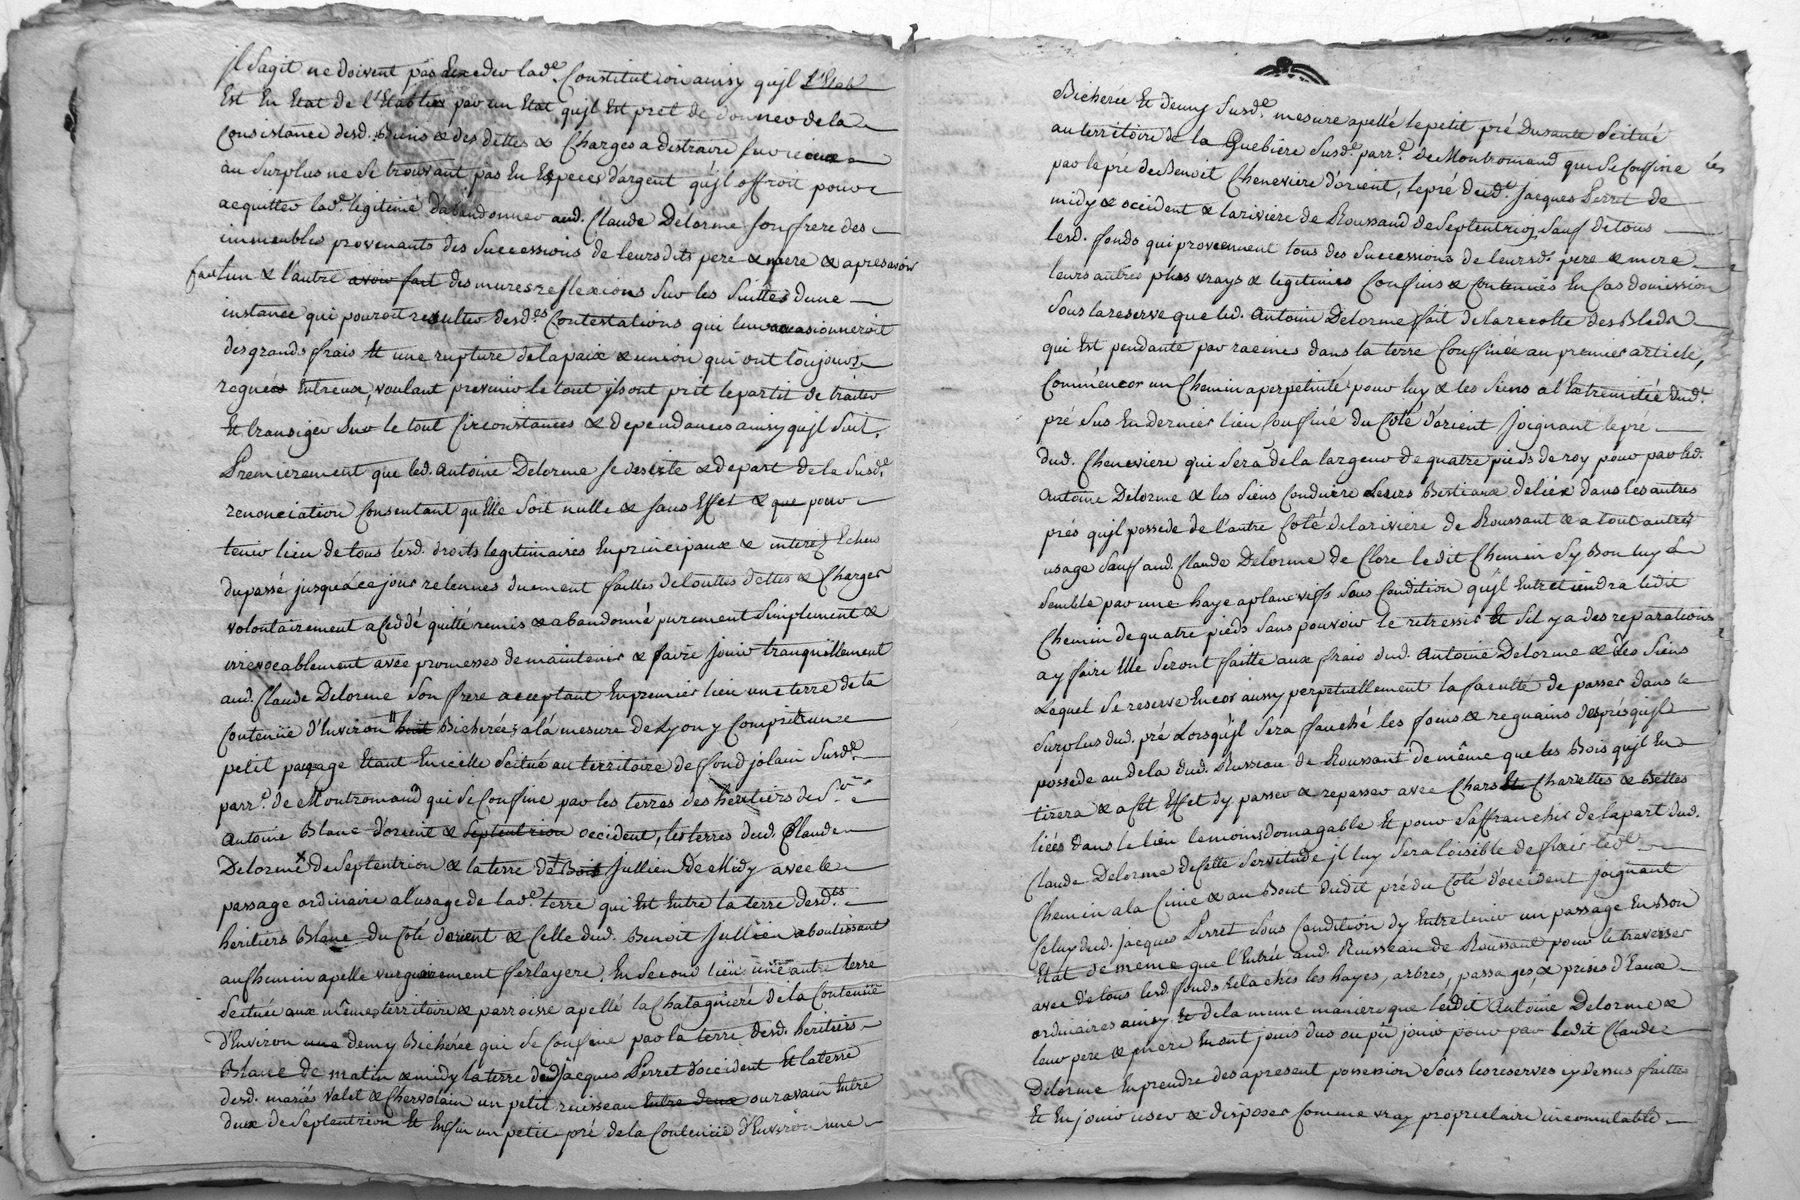 il Sagit ne doivent pas Exceder lad.e Constitution ainsy qu'jl
Est En Etat de l'Etablir par un Etat qujl Est pret de donner de la
Consistance desd. Biens & des dettes & Charges a distraire sur iceux
au Surplus ne Se trouvant pas En Especes d'argent qu'jl offroit pour
acquitter lad.e legitime d'abandonner aud. Claude Delorme son frere des
immeubles provenants des Successions de leursdits pere & mere & apres avoir
fait lun & l'autre avoir fait des mures reflexions Sur les Suittes dune
instance qui pourroit resulter desd.es Contestations qui leur occasionneroit
des grands frais Et une rupture de la paix & union qui ont toujours
regnée Entreux, voulant prevenir le tout jls ont prit le partit de traiter
Et transiger Sur le tout Circonstances & dependances ainsy qujl Suit.
Premierement que led. Antoine Delorme se desiste & depart de la Susd.e
renonciation Consentant qu'Elle Soit nulle & sans Effet & que pour
tenir lieu de tous lesd. droits legitimaires En principaux & interez Echeus
du passé jusqu'à ce jour retenues duement faittes de touttes dettes & Charges
volontairement a Ceddé quitté remis & abandonné purement Simplement &
irrevocablement avec promesses de maintenir & faire jouir tranquillement
aud. Claude Delorme Son frere acceptant En premier lieu une terre de la
Contenüe d'Environ huit Bicherées a la mesure de Lyon y Comprit un
petit passage Etant En icelle Scitué au territoire de fond jolain Susd.e
parr.e de Montromand qui Se Confine par les terres des heritiers de S.r
Antoine Blanc d'orient & Septentrion occident, les terres dud. Claude
Delorme de Septentrion & la terre de Benoit Jullien de Midy avec le
passage ordinaire a l'usage de lad.e terre qui Est Entre la terre desd.ts
heritiers Blanc du Coté d'orient & Celle dud. Benoit Jullien aboutissant
au Chemin apellé vulgairement ferlayere. En Second lieu une autre terre
Scituée aux même territoire & parroisse apellé la Chatagniere de la Contenüe
d'Environ une demy Bicherée qui Se Confine par la terre desd. heritiers
Blanc de matin & midy la terre dud. Jacques Perret d'occident Et la terre
desd. mariés Valet & Chervolain un petit ruisseau Entre deux ou ravain Entre
deux de Septentrion Et Enfin un petit pré de la Contenüe d'Environ une
Bicherée Et demy Susd.e mesure apellé le petit pré Dusante Scitué
au territoire de la Guebiere Susd.e parr.e de Montromand qui Se Confine
par le pré de Benoit Cheneviere d'orient, le pré dud.t Jacques Perret de
midy & occident & la riviere de Roussand de Septentrion Sauf de tous
lesd. fonds qui proviennent tous des Successions de leursd. pere & mere
leurs autres plus vrays & legitimes Confins & Contenües En Cas d'omission
Sous la reserve que led. Antoine Delorme fait de la recolte des Bleds
qui Est pendante par racines dans la terre Confinée au premier article,
Commencer un Chemin a perpetuité pour luy & les Siens a l'Extremitée dud.t
pré Sus En dernier lieu Confiné du Coté d'orient joignant le pré
dud. Cheneviere qui Sera de la largeur de quatre pieds de roy pour par led.
Antoine Delorme & les Siens Conduire Leurs Bestiaux deliés dans les autres
prés qu'jl possede de l'autre Coté de la riviere de Roussant & a tout autres
usage Sauf aud. Claude Delorme de Clore ledit Chemin Sy Bon luy
Semble par une haye a plan vifs Sous Condition qu'jl Entretiendra ledit
Chemin de quatre pieds Sans pouvoir le retressir Et Sil y a des reparations
a y faire Elle Seront faitte aux frais dud. Antoine Delorme & des Siens
Lequel Se reserve Encor aussy perpetuellement la faculté de passer dans le
Surplus dud. pré Lorsqu'jl Sera fauché les foins & reguains des prés qu'jl
possede au dela dud. Russeau de Roussant de même que les Bois qu'jl En
tirera & a Cet Effet d'y passer & repasser avec Chars Chariettes & Bettes
liées dans le lieu le moins domagable Et pour S'affranchir de la part dud.
Claude Delorme de Cette Servitude jl luy Sera loisible de fixer led.t
Chemin a la Cime & au Bout dudit pré du Coté d'occident joignant
Celuy dud. Jacques Perret Sous Condition d'y Entretenir un passage En Bon
Etat de même que l'Entrée aud. Ruisseau de Roussant pour le traverser
avec de tous lesd. fonds Relachés les hayes, arbres, passages & prises d'Eaux
ordinaires ainsy Et de la meme maniere que ledit Antoine Delorme &
leur pere & mere En ont jouis dus ou pü jouir pour par ledit Claude
Delorme En prendre des a present possession Sous les reserves cy dessus faittes
Et En jouir user & disposer Comme vray proprietaire incomutable